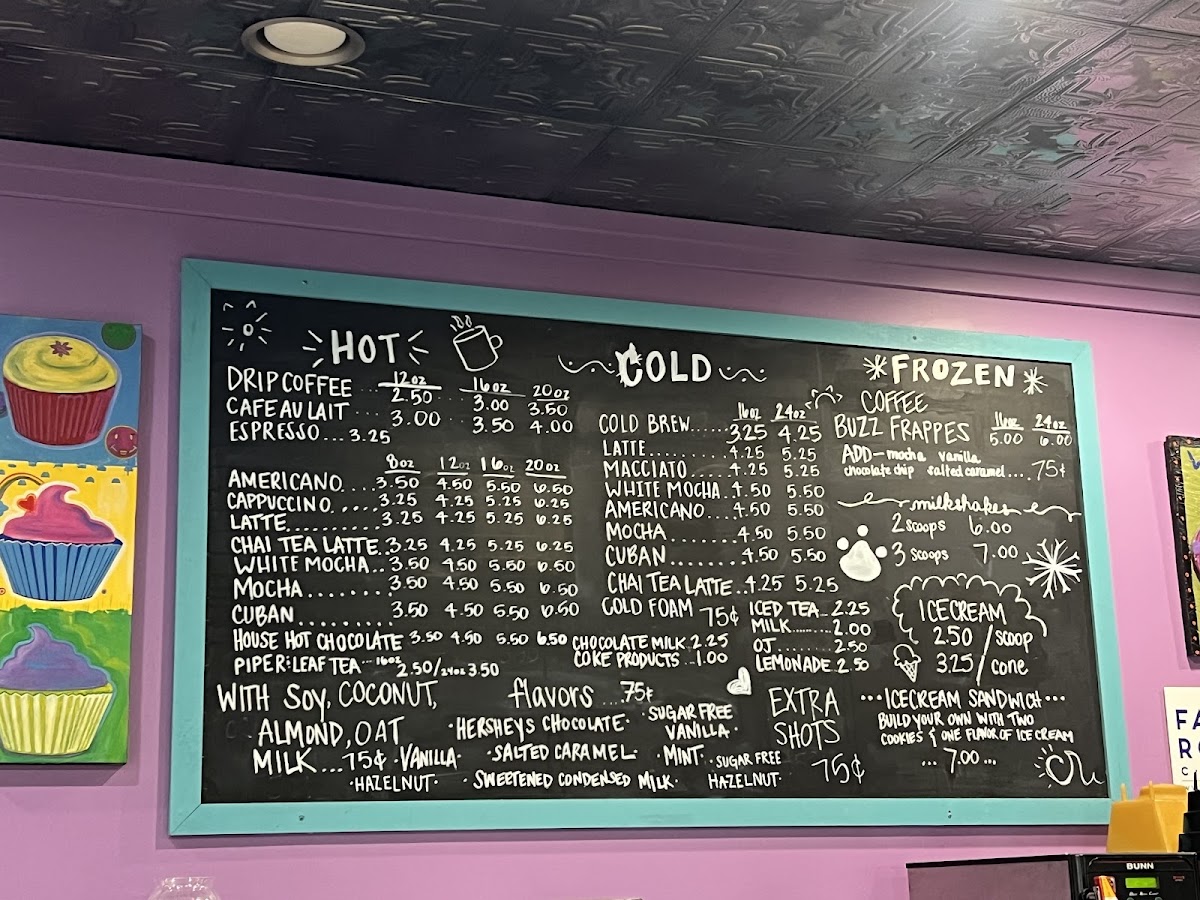 HOT
DRIP COFFEE ... 12oz 2.50 16oz 3.00 20oz 3.50
CAFE AU LAIT .... 3.00 3.50 4.00
ESPRESSO... 3.25
8oz 12oz 16oz 20oz
AMERICANO.... 3.50 4.50 5.50 6.50
CAPPUCCINO..... 3.25 4.25 5.25 6.25
LATTE.......... 3.25 4.25 5.25 6.25
CHAI TEA LATTE.. 3.25 4.25 5.25 6.25
WHITE MOCHA.. 3.50 4.50 5.50 6.50
MOCHA........ 3.50 4.50 5.50 6.50
CUBAN......... 3.50 4.50 5.50 6.50
HOUSE HOT CHOCOLATE 3.50 4.50 5.50 6.50
PIPER & LEAF TEA... 16oz 2.50/24oz 3.50
WITH SOY, COCONUT,
ALMOND, OAT
MILK...75¢
COLD
16oz 24oz
COLD BREW...... 3.25 4.25
LATTE......... 4.25 5.25
MACCIATO..... 4.25 5.25
WHITE MOCHA.. 4.50 5.50
AMERICANO.... 4.50 5.50
MOCHA........ 4.50 5.50
CUBAN........ 4.50 5.50
CHAI TEA LATTE.. 4.25 5.25
COLD FOAM 75¢
CHOCOLATE MILK. 2.25
COKE PRODUCTS .. 1.00
ICED TEA... 2.25
MILK......... 2.00
OJ....... 2.50
LEMONADE. 2.50
flavors ...75¢
·HERSHEYS CHOCOLATE· SUGAR FREE VANILLA·
·VANILLA· ·SALTED CARAMEL· ·MINT·
·HAZELNUT· ·SWEETENED CONDENSED MILK· ·SUGAR FREE HAZELNUT·
EXTRA
SHOTS
75¢
FROZEN
COFFEE
BUZZ FRAPPES 16oz 5.00 24oz 6.00
ADD - mocha vanilla
chocolate chip salted caramel.... 75¢
milkshakes
2 scoops 6.00
3 scoops 7.00
ICECREAM
2.50 / scoop
3.25 / cone
...ICECREAM SANDWICH...
BUILD YOUR OWN WITH TWO
COOKIES & ONE FLAVOR OF ICE CREAM
... 7.00 ...
FA
R
BUNN